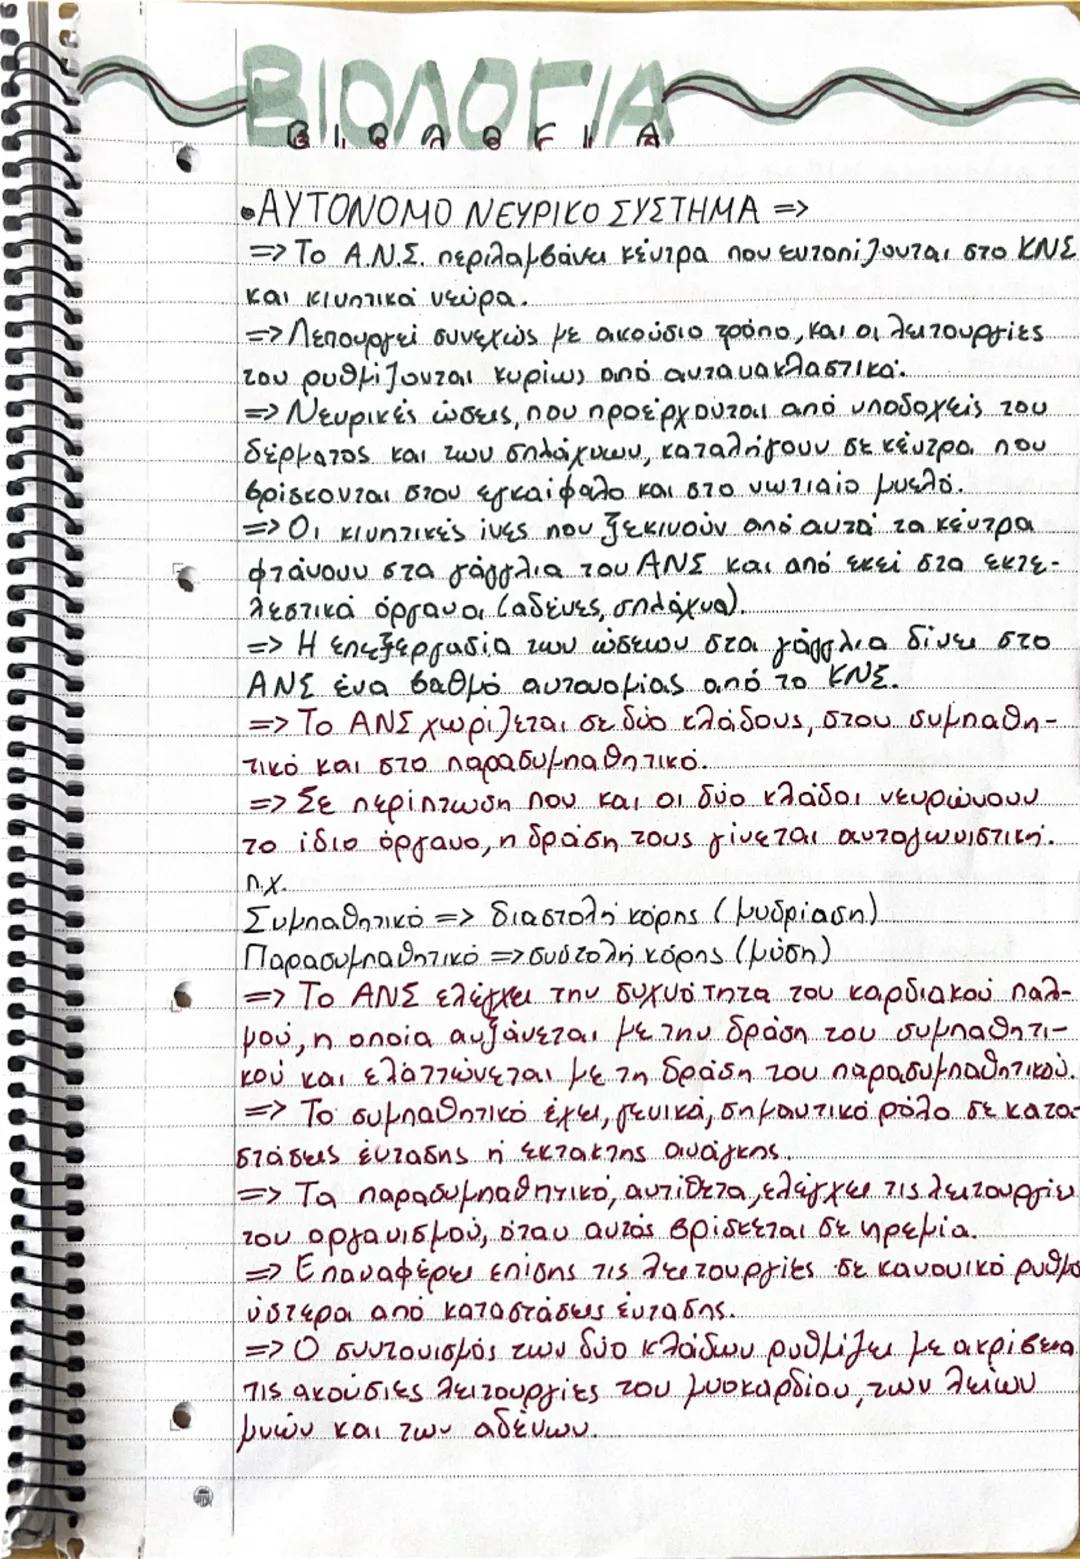 ΒΙΟΛΟΓΙΑ
ΒΙΟΛΟΓΙΑ
•ΑΥΤΟΝΟΜΟ ΝΕΥΡΙΚΟ ΣΥΣΤΗΜΑ =>
=> Το Α.Ν.Σ. περιλαμβάνει κέντρα που εντοπίζονται στο ΚΝΣ
και κινητικά νεύρα.
=> Λειτουργεί συνεχώς με ακούσιο τρόπο, και οι λειτουργίες
του ρυθμίζονται κυρίως από αντανακλαστικά.
=> Νευρικές ώσεις, που προέρχονται από υποδοχείς του
δέρματος και των σπλάχνων, καταλήγουν σε κέντρα που
βρίσκονται στον εγκαίφαλο και στο νωτιαίο μυελό.
=> Οι κινητικές ίνες που ξεκινούν από αυτά τα κέντρα
φτάνουν στα γάγγλια του ΑΝΣ και από εκεί στα εκτε-
λεστικά όργανα (αδένες, σπλάχνα).
=> Η επεξεργασία των ώσεων στα γάγγλια δίνει στο
ΑΝΣ ένα βαθμό αυτονομίας από το ΚΝΣ.
=> Το ΑΝΣ χωρίζεται σε δύο κλάδους, στον συμπαθη-
τικό και στο παρασυμπαθητικό.
=> Σε περίπτωση που και οι δύο κλάδοι νευρώνουν
το ίδιο όργανο, η δράση τους γίνεται ανταγωνιστική.
π.χ.
Συμπαθητικό => διαστολή κόρης (μυδρίαση)
Παρασυμπαθητικό => συστολή κόρης (μύση)
=> Το ΑΝΣ ελέγχει την συχνότητα του καρδιακού παλ-
μού, η οποία αυξάνεται με την δράση του συμπαθητι-
κού και ελαττώνεται με τη δράση του παρασυμπαθητικού.
=> Το συμπαθητικό έχει, γενικά, σημαντικό ρόλο σε κατα-
στάσεις έντασης ή έκτακτης ανάγκης.
=> Τα παρασυμπαθητικό, αντίθετα, ελέγχει τις λειτουργίες
του οργανισμού, όταν αυτός βρίσκεται σε ηρεμία.
=> Επαναφέρει επίσης τις λειτουργίες σε κανονικό ρυθμό
ύστερα από καταστάσεις έντασης.
=> Ο συντονισμός των δύο κλάδων ρυθμίζει με ακρίβεια
τις ακούσιες λειτουργίες του μυοκαρδίου, των λείων
μυών και των αδένων.